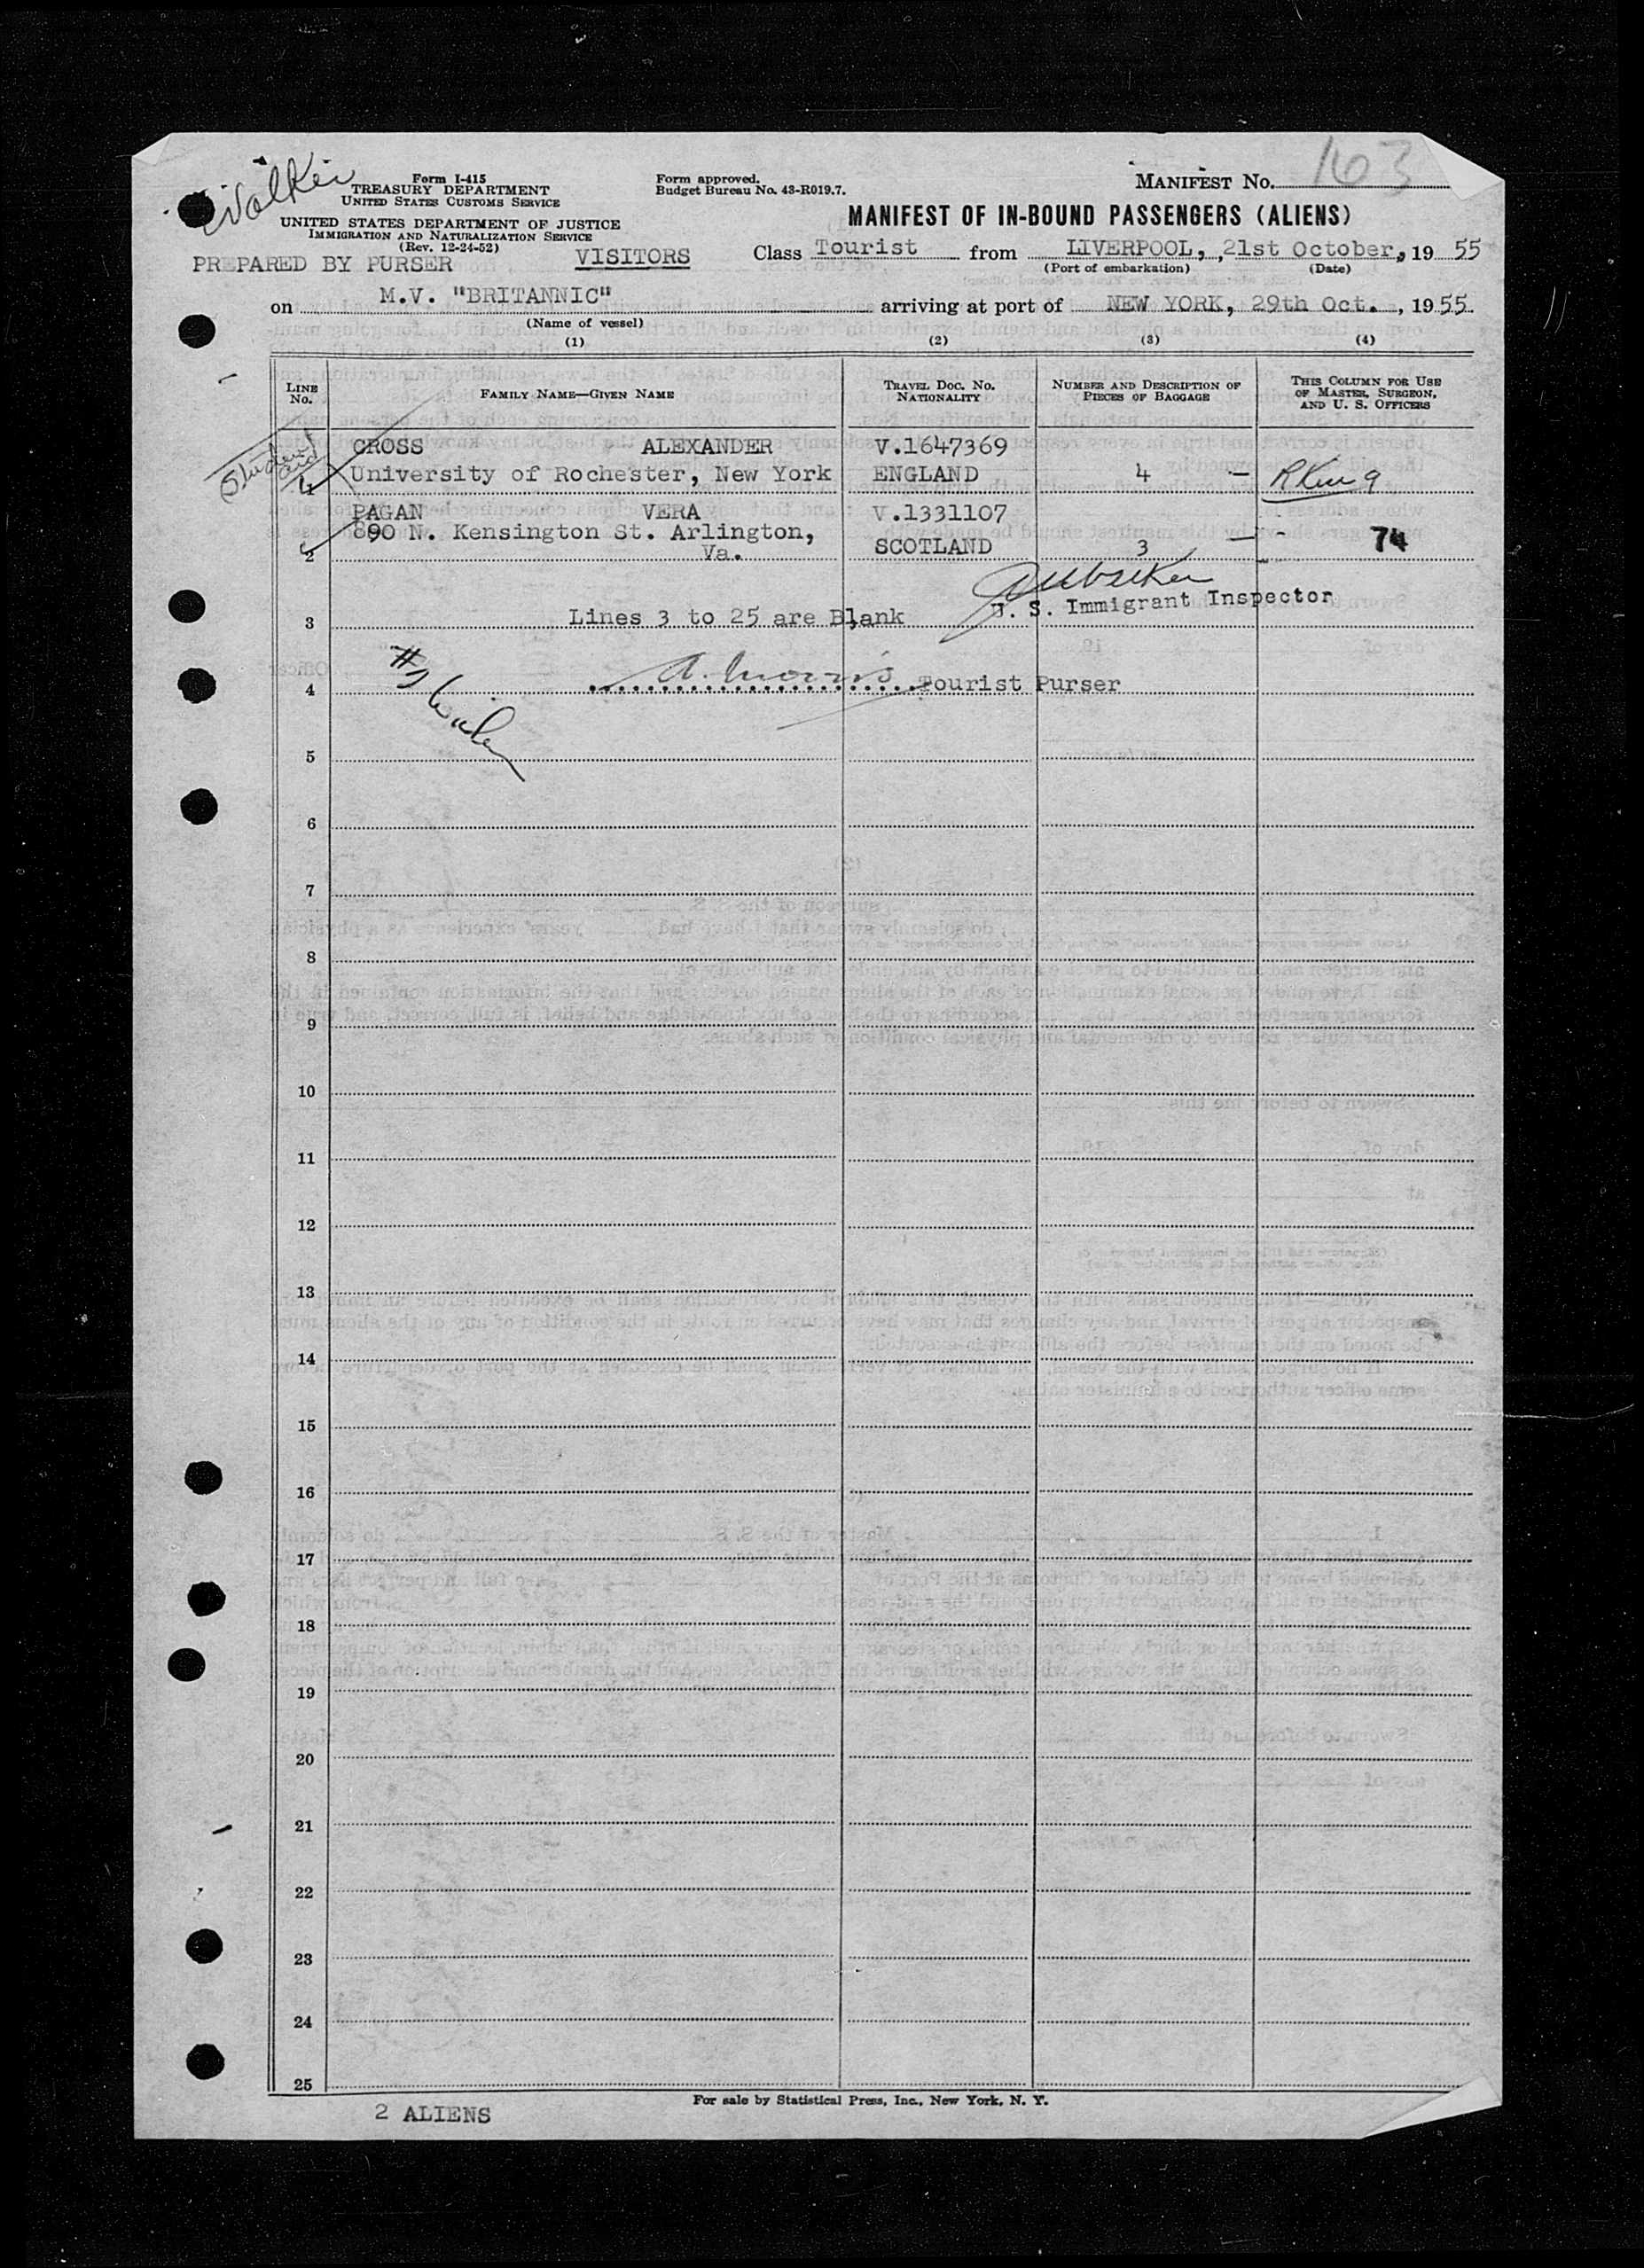 Walker
Form I-415
TREASURY DEPARTMENT
UNITED STATES CUSTOMS SERVICE
UNITED STATES DEPARTMENT OF JUSTICE
IMMIGRATION AND NATURALIZATION SERVICE
(Rev. 12-24-52)
PREPARED BY PURSER
VISITORS
Form approved.
Budget Bureau No. 43-R019.7.
MANIFEST NO. 163
MANIFEST OF IN-BOUND PASSENGERS (ALIENS)
Class Tourist from LIVERPOOL, , 21st October, , 19 55
(Port of embarkation) (Date)
on M.V. "BRITANNIC" arriving at port of NEW YORK, 29th Oct. , 19 55
(Name of vessel)
(1) (2) (3) (4)
LINE NO.
FAMILY NAME—GIVEN NAME
TRAVEL DOC. NO. NATIONALITY
NUMBER AND DESCRIPTION OF PIECES OF BAGGAGE
THIS COLUMN FOR USE OF MASTER, SURGEON, AND U. S. OFFICERS
Student
CROSS ALEXANDER V.1647369
1 University of Rochester, New York ENGLAND 4 —
PAGAN VERA V.1331107
890 N. Kensington St. Arlington,
2 Va. SCOTLAND 3 — 74
U. S. Immigrant Inspector
3 Lines 3 to 25 are Blank
4 A. Morris Tourist Purser
5
6
7
8
9
10
11
12
13
14
15
16
17
18
19
20
21
22
23
24
25
For sale by Statistical Press, Inc., New York, N. Y.
2 ALIENS